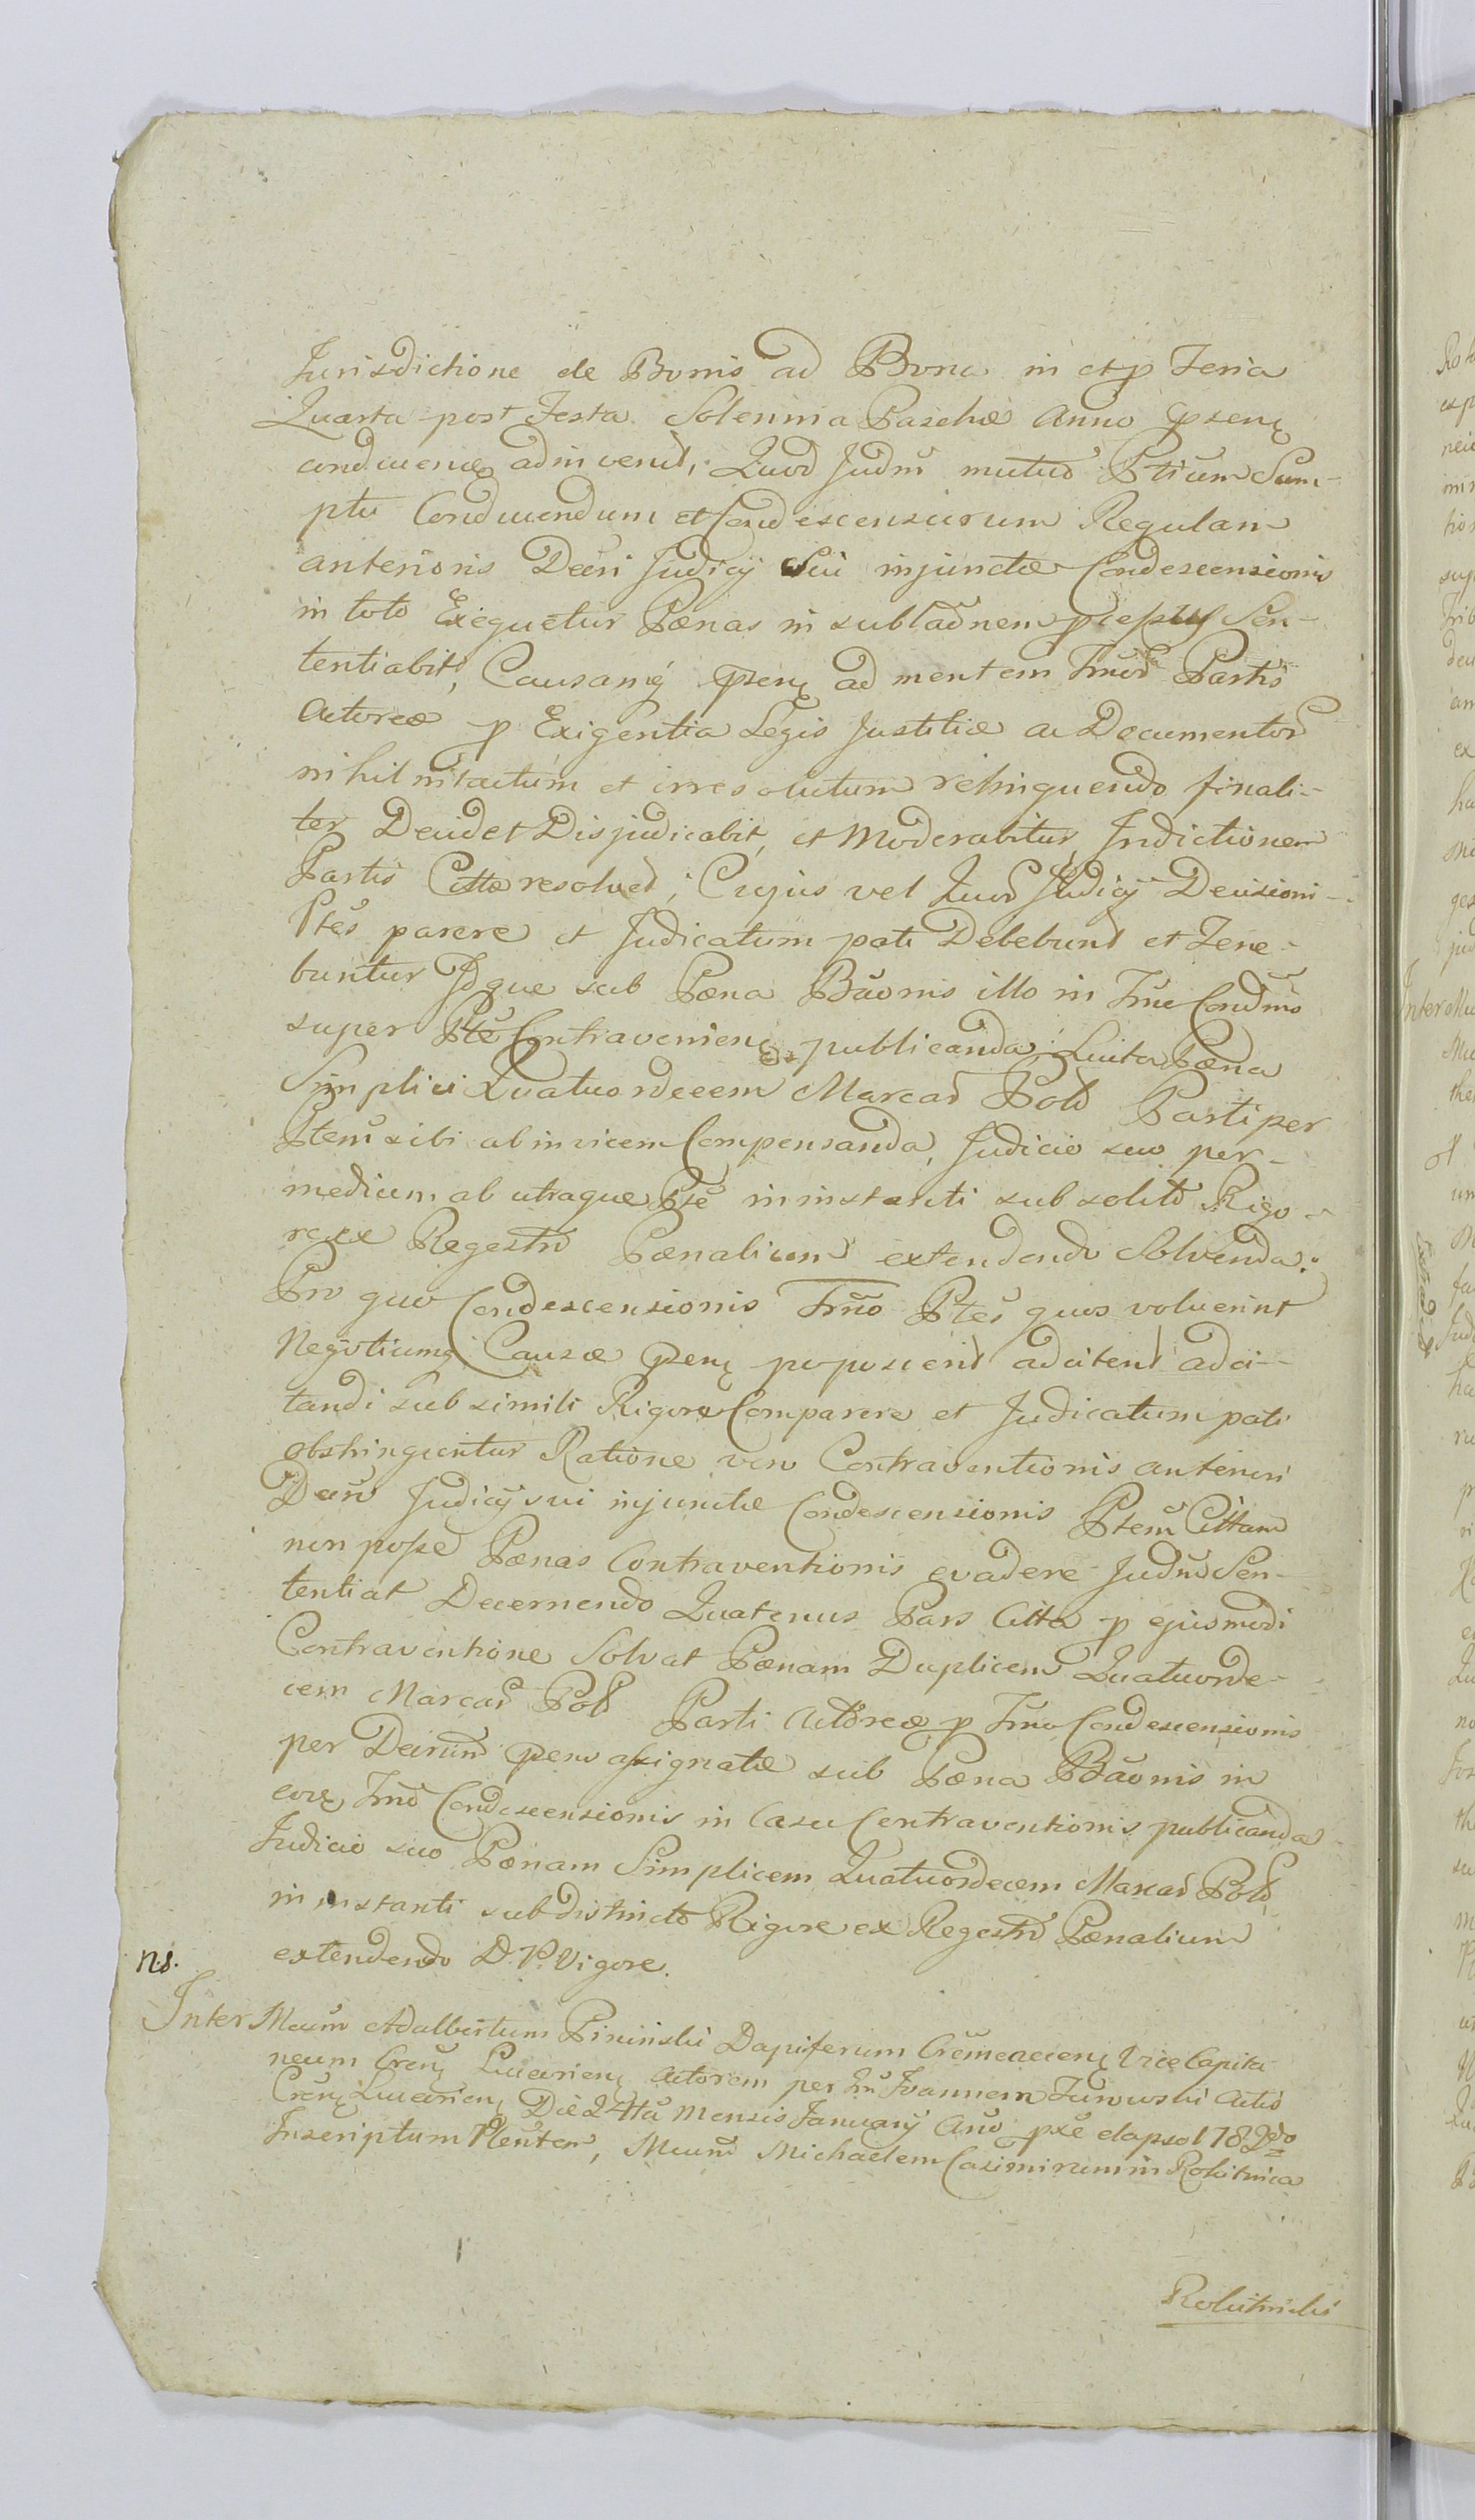 Jurisdictione de Bonis ad Bona in et p Feria
Quarta post Festa Solennia Paschæ Anno psenę
condnenę adinvenit; Quod Judm mutuo Ptium Sum-
ptu Conducendum et Condescensurum Regulam
anterioris Decri Judicÿ Sui injunctæ Condescensionis
in toto Exequetur Pænas in subladnem Sen-
tentiabit, Causamq psenę ad mentem Tmor Partis
Actoreæ p Exigentia Legis Justitiæ ac Documentor
nihil intactum et irresolutum relinquendo finali-
ter Decidet Disjudicabit, et Moderabitur Indictionem
Partis Cittæ resolvet; Cujus vel Quod Judicÿ Decisioni-
Ptes parere et Judicatum pati Debebunt et Tene-
buntur Idque sub Pæna Bãonis illo in Tmno Condmis
super Pte Contravenienę publicanda; Luita Pæna
Simplici Quatuordecem Marcar Pold Parti per
Ptem sibi ab invicem Compensanda, Judicio suo per-
medium ab utraque Pte in instanti sub solito Rigo-
re ex Regestro Pænalium extendendo Solvenda:
Pro quo Condescensionis Tmno Ptes quos voluerint
Negotiumq Causæ psenę poposcerit adcitent adci-
tandi sub simili Rigore Comparere et Judicatum pati
obstringuntur Ratione vero Contraventionis anteriori
Decro Judicÿ sui injunctæ Condescensionis Ptem Cittam
non posse Pænas Contraventionis evadere Judm Sen-
tentiat Decernendo Quatenus Pars Citta p ejusmodi
Contraventione Solvat Pænam Duplicem Quatuorde-
cem Marcar Pold Parti Actoreæ p Tmno Condescensionis
per Decrum psens assignatæ sub Pæna Bãonis in
eodę Tmno Condescensionis in Casu Contraventionis publicanda
Judicio suo Pænam Simplicem Quatuordecem Marcar Pold
in instanti sub districto Rigore ex Regestro Pænalium
extendendo D. P. Vigore.
n.8.
Inter Mcum Adalbertum Pininski Dapiferum Cremenecenę Vice Capita
neum Crenę Luceorienę Actorem per Joannem Turowski Actis
Crenę Luceorienę Die 24ta Mensis Januarÿ Ano pxe elapso 1782do
Inscriptum Plenten, Mcum Michaelem Casimirum in Rokitnica
Rokitnicki